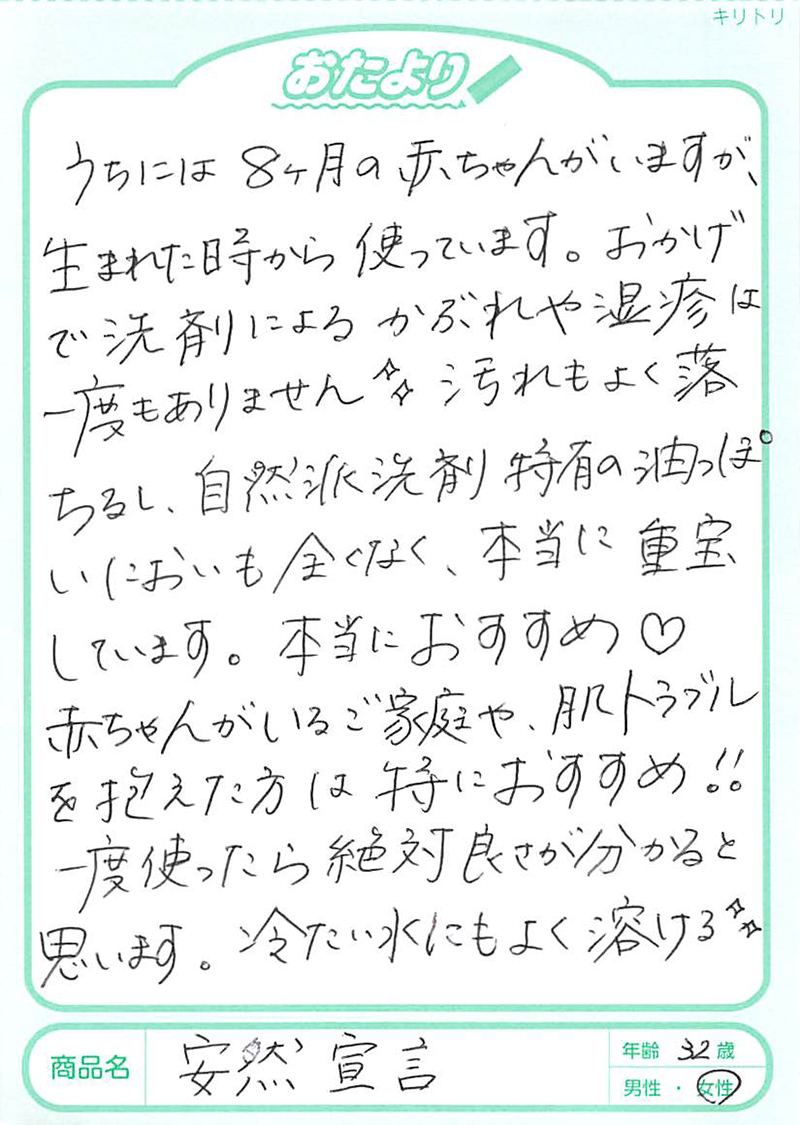 キリトリ
おたより
うちには8ヶ月の赤ちゃんがいますが、
生まれた時から使っています。おかげ
で洗剤によるかぶれや湿疹は
一度もありません✨汚れもよく落
ちるし、自然派洗剤特有の油っぽ
いにおいも全くなく、本当に重宝
しています。本当におすすめ♡
赤ちゃんがいるご家庭や、肌トラブル
を抱えた方は特におすすめ!!
一度使ったら絶対良さが分かると
思います。冷たい水にもよく溶ける✨
商品名 安然宣言
年齢 32歳
男性・女性